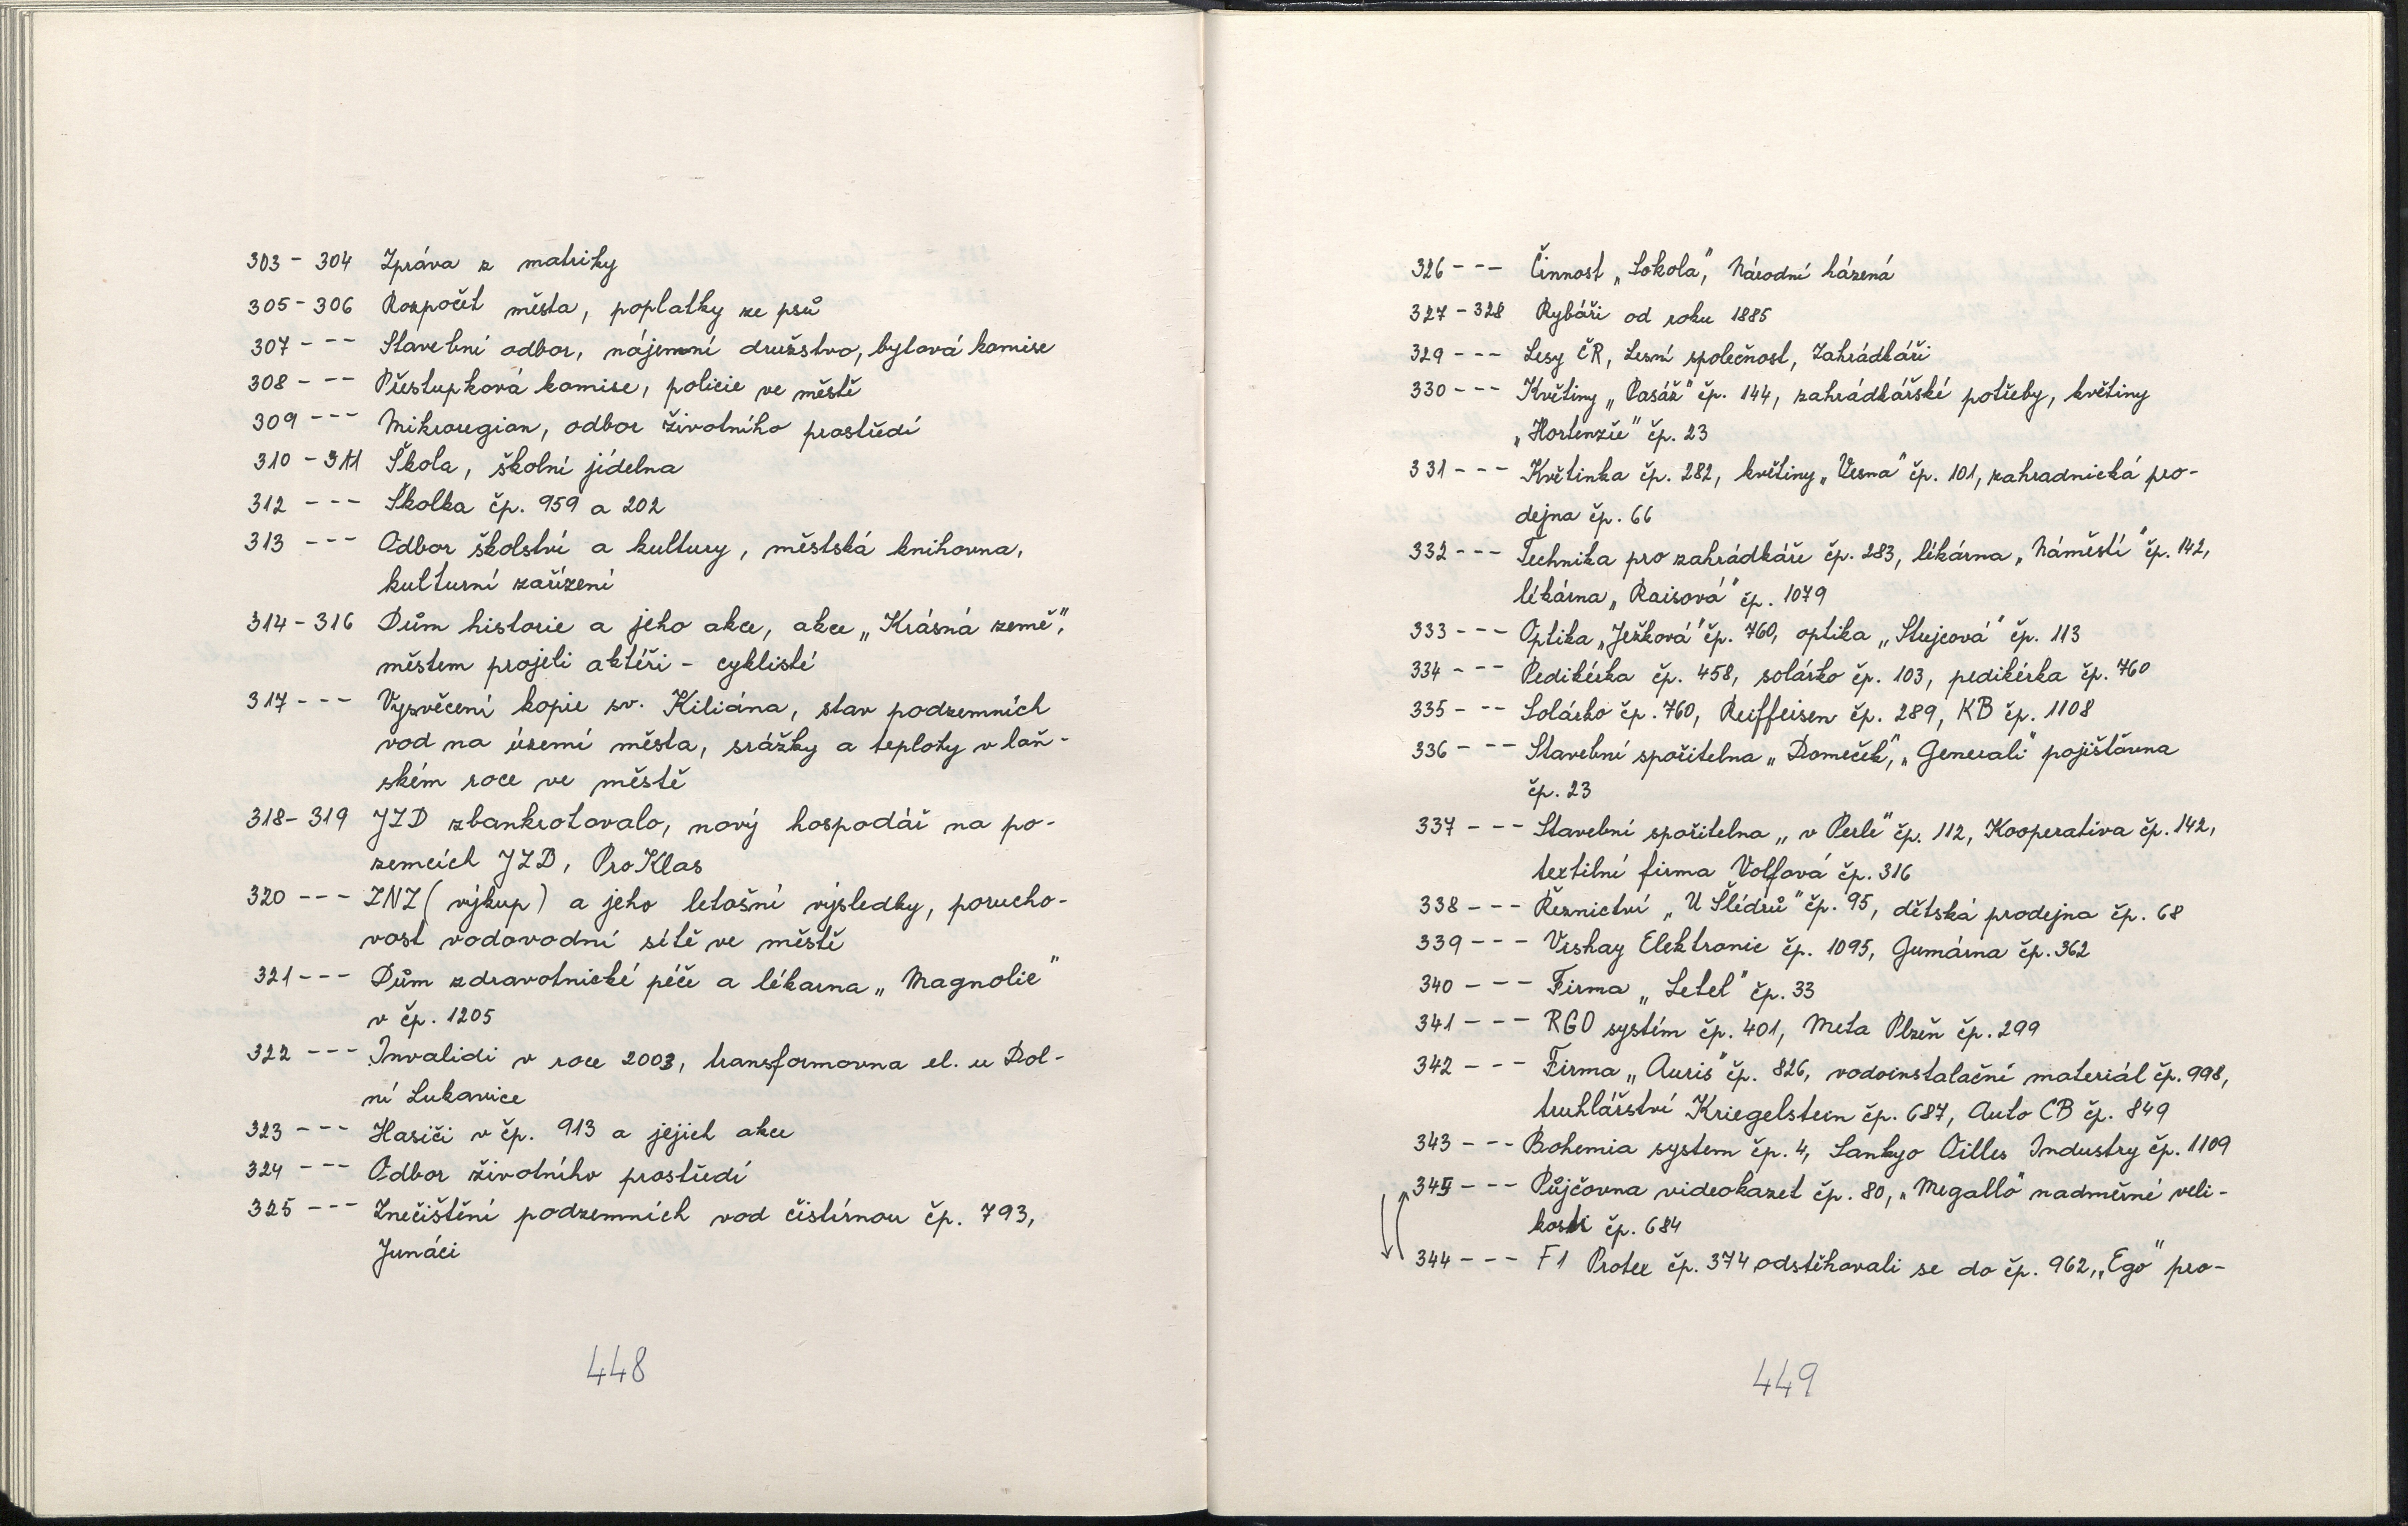 303 - 304 Zpráva z matriky
305 - 306 Rozpočet města, poplatky ze psů
307 - - - Stavební odbor, nájemní družstvo, bytová komise
308 - - - Přestupková komise, policie ve městě
309 - - - Mikroregion, odbor životního prostředí
310 - 311 Škola, školní jídelna
312 - - - Školka čp. 959 a 202
313 - - - Odbor školství a kultury, městská knihovna,
kulturní zařízení
314 - 316 Dům historie a jeho akce, akce „Krásná země",
městem projeli aktéři - cyklisté
317 - - - Vysvěcení kopie sv. Kiliána, stav podzemních
vod na území města, srážky a teploty v loň-
ském roce ve městě
318 - 319 JZD zbankrotovalo, nový hospodář na po-
zemcích JZD, ProKlas
320 - - - ZNZ (výkup) a jeho letošní výsledky, porucho-
vost vodovodní sítě ve městě
321 - - - Dům zdravotnické péče a lékarna „Magnolie"
v čp. 1205
322 - - - Invalidi v roce 2003, transformovna el. u Dol-
ní Lukavice
323 - - - Hasiči v čp. 913 a jejich akce
324 - - - Odbor životního prostředí
325 - - - Znečištění podzemních vod čistírnou čp. 793,
Junáci
448
326 - - - Činnost „Sokola", Národní házená
327 - 328 Rybáři od roku 1885
329 - - - Lesy ČR, Lesní společnost, Zahrádkáři
330 - - - Květiny „Pasáž" čp. 144, zahrádkářské potřeby, květiny
„Hortenzie" čp. 23
331 - - - Květinka čp. 282, květiny „Vesna" čp. 101, zahradnická pro-
dejna čp. 66
332 - - - Technika pro zahrádkáře čp. 283, lékárna „Náměstí" čp. 142,
lékárna „Raisová" čp. 1079
333 - - - Optika „Ježková" čp. 760, optika „Stejcová" čp. 113
334 - - - Pedikérka čp. 458, solárko čp. 103, pedikérka čp. 760
335 - - - Solárko čp. 760, Reiffeisen čp. 289, KB čp. 1108
336 - - - Stavební spořitelna „Domeček", „Generali" pojišťovna
čp. 23
337 - - - Stavební spořitelna „v Perle" čp. 112, Kooperativa čp. 142,
textilní firma Volfová čp. 316
338 - - - Řeznictví „U Šlédrů" čp. 95, dětská prodejna čp. 68
339 - - - Vishay Elektronic čp. 1095, Gumárna čp. 362
340 - - - Firma „Letel" čp. 33
341 - - - RGO systém čp. 401, Meta Plzeň čp. 299
342 - - - Firma „Auris" čp. 826, vodoinstalační materiál čp. 998,
truhlářství Kriegelstein čp. 687, Auto CB čp. 849
343 - - - Bohemia system čp. 4, Sankyo Oilles Industry čp. 1109
345 - - - Půjčovna videokazet čp. 80, „Megallo" nadměrné veli-
kosti čp. 684
344 - - - F1 Protec čp. 374 odstěhovali se do čp. 962, „Ego" pro-
449